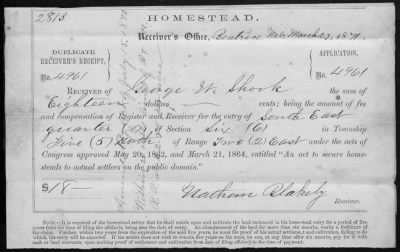 2813
HOMESTEAD.
Receiver's Office, Beatrice Neb. March 23, 1871.
DUPLICATE RECEIVER'S RECEIPT,
No. 4961
APPLICATION,
No. 4961
RECEIVED OF George W. Shook the sum of
Eighteen dollars cents; being the amount of fee
and compensation of Register and Receiver for the entry of South East
quarter of Section Six (6) in Township
Five (5) North, of Range Two (2) East under the acts of
Congress approved May 20, 1862, and March 21, 1864, entitled "An act to secure homesteads
to actual settlers on the public domain."
$18-
Nathan Blakely
Receiver.
NOTE.—It is required of the homestead settler that he shall reside upon and cultivate the land embraced in his homestead entry for a period of five
years from the time of filing the affidavit, being also the date of entry. An abandonment of the land for more than six months, works a forfeiture of
his claim. Further, within two years from the expiration of the said five years, he must file proof of his actual settlement and cultivation, failing to
do which, his entry will be canceled. If the settler does not wish to remain five years on his tract, he can, at any time after six months, pay for it with
cash or land warrants, upon making proof of settlement and cultivation from date of filing affidavit to the time of payment.